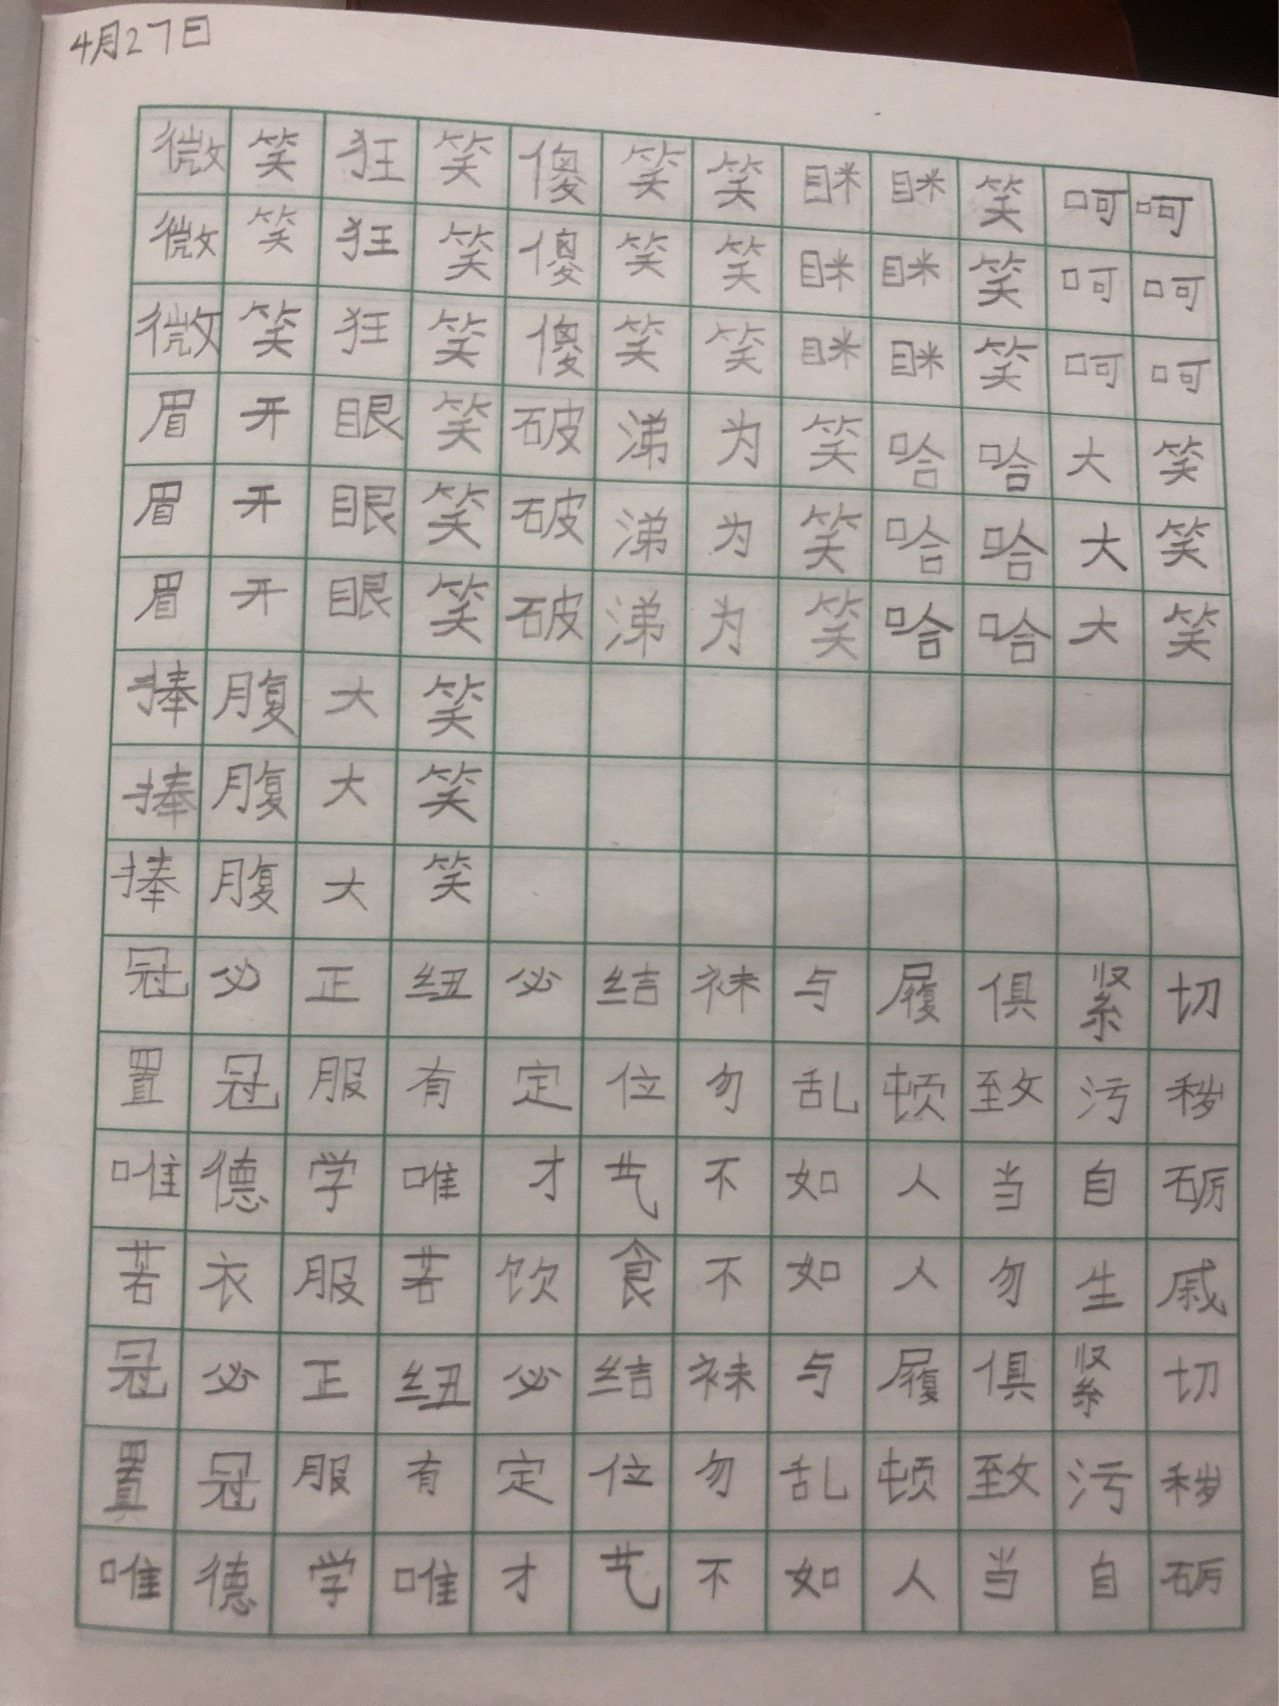 4月27日
微笑狂笑傻笑笑眯眯笑呵呵
微笑狂笑傻笑笑眯眯笑呵呵
微笑狂笑傻笑笑眯眯笑呵呵
眉开眼笑破涕为笑哈哈大笑
眉开眼笑破涕为笑哈哈大笑
眉开眼笑破涕为笑哈哈大笑
捧腹大笑
捧腹大笑
捧腹大笑
冠必正纽必结袜与履俱紧切
置冠服有定位勿乱顿致污秽
唯德学唯才艺不如人当自砺
若衣服若饮食不如人勿生戚
冠必正纽必结袜与履俱紧切
置冠服有定位勿乱顿致污秽
唯德学唯才艺不如人当自砺